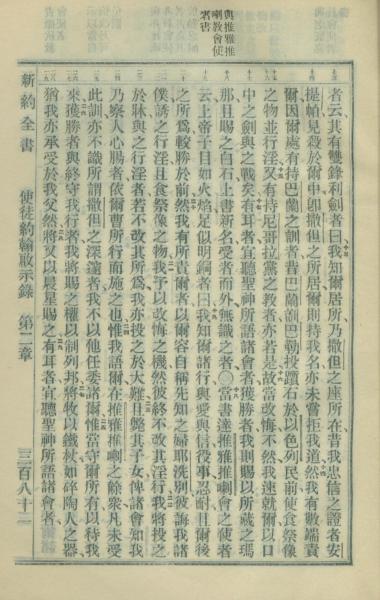 與推雅推
喇教會使
者書
者云其有雙鋒利劍者曰我知爾居所乃撒但之座所在昔我忠信之證者安
提帕見殺於爾中卽撒但之所居爾則持我名亦未嘗拒我道然我有數端責
爾因爾處有持巴蘭之訓者昔巴蘭訓巴勒投躓石於以色列民前使食祭像
之物並行淫又有持尼哥拉黨之教者亦若是故當改悔不然我速就爾以口
中之劍與之戰矣有耳者宜聽聖神所語諸會者獲勝者我則賜以所藏之瑪
那且賜之白石上書新名受者而外無識之者〇當書達推雅推喇會之使者
云上帝子目如火焰足似明銅者曰我知爾諸行與愛與信役事忍耐且爾後
之所爲較勝於前然我有所責爾者以爾容自稱先知之婦耶洗別彼誨我諸
僕誘之行淫且食祭像之物我予以改悔之機然彼終不改其淫行我將投之
於牀與之行淫者若不改其所爲我亦投之於大難且斃其子女俾諸會知我
乃察人心腸者依爾曹所行而施之也惟我語爾在推雅推喇之餘衆凡未受
此訓亦不識所謂撒但之深邃者我不以他任委諸爾惟當守爾所有以待我
來獲勝者與終守我行者我將賜之權以制列邦將牧以鐵杖如碎陶人之器
猶我亦承受於我父然將又以晨星賜之有耳者宜聽聖神所語諸會者
新約全書 使徒約翰啟示錄 第二章 三百八十二